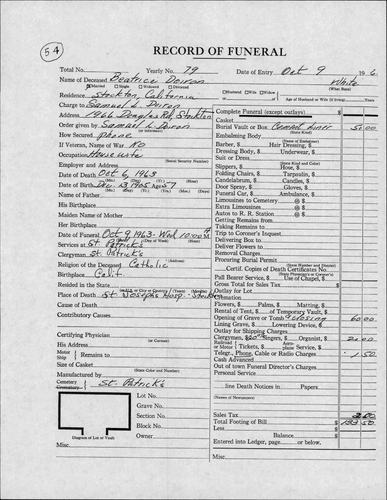 54
RECORD OF FUNERAL
Total No. Yearly No. 79 Date of Entry Oct 9 196
Name of Deceased Beatrice Doiron White
(What Race)
Married Single Widowed Divorced
Residence Stockton, California
Husband Wife Widow Age of Husband or Wife (if living) Years
Charge to Samuel L. Doiron
Address 1966 Douglas Rd, Stockton
Order given by Samuel L. Doiron
How Secured phone
If Veteran, Name of War No
Occupation Housewife
(Social Security Number)
Employer and Address
Date of Death Oct 6, 1963
Date of Birth Dec 13 1905 57
Name of Father
His Birthplace
Maiden Name of Mother
Her Birthplace
Date of Funeral Oct 9, 1963 - Wed 10:00
(Day of Week) (Hour)
Services at St Patrick's
Clergyman St Patrick's
(Address)
Religion of the Deceased Catholic
Birthplace Calif
Resided in the State
Place of Death St Josephs Hosp. Stockton
Cause of Death
Contributory Causes
Certifying Physician
(or Coroner)
His Address
Motor Ship Remains to
Size of Casket
(State Color and Number)
Manufactured by
Cemetery St. Patrick's
Lot No.
Grave No.
Section No.
Block No.
Owner
Diagram of Lot or Vault
Complete Funeral (except outlays) $
Casket
Burial Vault or Box Cement liner 50 00
(Name of Embalmer)
Embalming Body
Barber, $ Hair Dressing, $
Dressing Body, $ Underwear, $
Suit or Dress
(State Kind and Color)
Slippers, $ Hose, $
Folding Chairs, $ Tarpaulin, $
Candelabrum, $ Candles, $
Door Spray, $ Gloves, $
Funeral Car, $ Ambulance, $
Limousines to Cemetery @ $
Extra Limousines @ $
Autos to R. R. Station @ $
Getting Remains from
Taking Remains to
Trip to Coroner's Inquest
Delivering Box to
Deliver Flowers to
Removal Charges
Procuring Burial Permit
(State Number and District)
Certif. Copies of Death Certificates No.
Pall Bearer Service, $ Use of Chapel, $
Gross Total for Sales Tax $
Outlay for Lot
Cremation
Flowers, $ Palms, $ Matting, $
Rental of Tent, $ of Temporary Vault, $
Opening of Grave or Tomb closing 60 00
Lining Grave, $ Lowering Device, $
Outlay for Shipping Charges
Clergymen, $ Singers, $ Organist, $ 20 00
Railroad or Motor Tickets, $ Aeroplane Service, $
Telegr., Phone, Cable or Radio Charges 1 50
Cash Advanced
Out of town Funeral Director's Charges
Personal Service
line Death Notices in Papers
(Names of Newspapers)
Sales Tax 2 00
Total Footing of Bill $ 133 50
Less $
Balance $
Entered into Ledger, page or below.
Misc.
Misc.